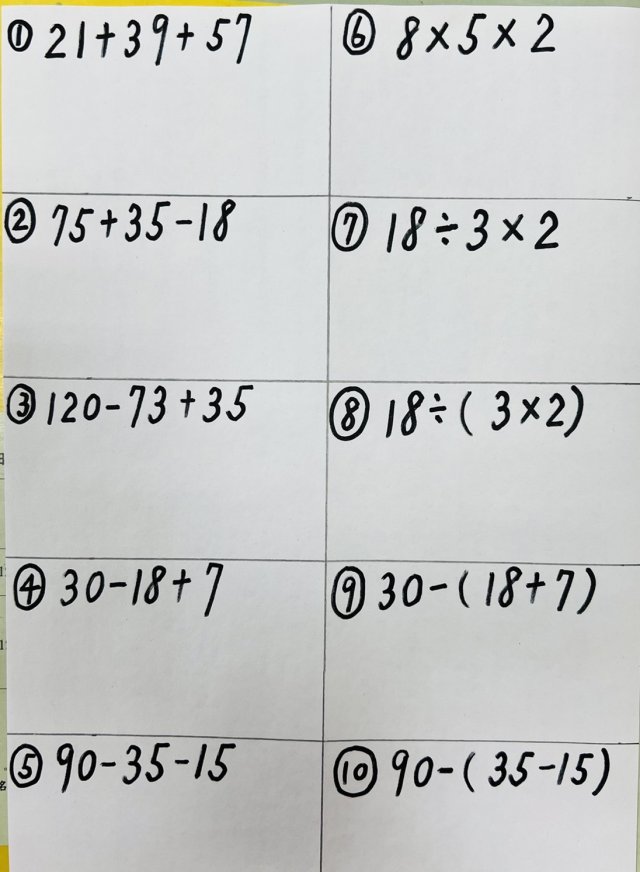 ① 21+39+57
② 75+35-18
③ 120-73+35
④ 30-18+7
⑤ 90-35-15
⑥ 8×5×2
⑦ 18÷3×2
⑧ 18÷(3×2)
⑨ 30-(18+7)
⑩ 90-(35-15)